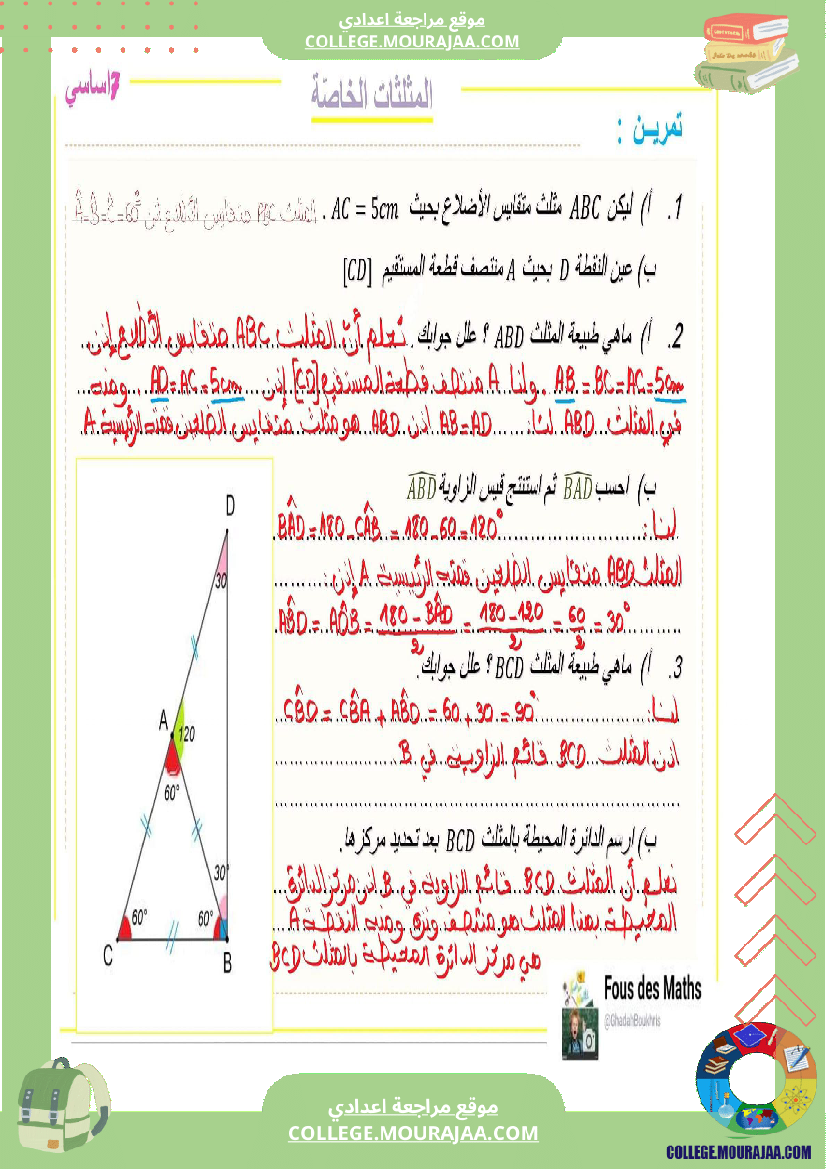 موقع مراجعة اعدادي
COLLEGE.MOURAJAA.COM
7اساسي
المثلثات الخاصّة
تمريـن :
1. أ) ليكن ABC مثلث متقايس الأضلاع بحيث AC = 5cm . المثلث ABC متقايس الأضلاع فإن Â=B̂=Ĉ=60°
ب) عين النقطة D بحيث A منتصف قطعة المستقيم [CD]
2. أ) ماهي طبيعة المثلث ABD ؟ علل جوابك . نعلم أنّ المثلث ABC متقايس الأضلاع إذن
AB = BC = AC = 5cm . ولنا A منتصف قطعة المستقيم [CD] إذن AD = AC = 5cm . ومنه
في المثلث ABD لنا: AB = AD إذن ABD هو مثلث متقايس الضلعين قمته الرئيسية A
ب) احسب BAD ثم استنتج قيس الزاوية ABD
لنا: BÂD = 180 - CÂB = 180 - 60 = 120°
المثلث ABD متقايس الضلعين قمته الرئيسية A إذن :
AB̂D = AD̂B = (180 - BÂD)/2 = (180 - 120)/2 = 60/2 = 30°
3. أ) ماهي طبيعة المثلث BCD ؟ علل جوابك.
لنا: CB̂D = CB̂A + AB̂D = 60 + 30 = 90°
اذن المثلث BCD قائم الزاوية في B
ب) ارسم الدائرة المحيطة بالمثلث BCD بعد تحديد مركزها.
نعلم أن المثلث BCD قائم الزاوية في B اذن مركز الدائرة
المحيطة بهذا المثلث هو منتصف وتره ومنه النقطة A
هي مركز الدائرة المحيطة بالمثلث BCD
D
30
A
120
60°
30°
60°
60°
C
B
Fous des Maths
@GhadahBoukhris
موقع مراجعة اعدادي
COLLEGE.MOURAJAA.COM
COLLEGE.MOURAJAA.COM